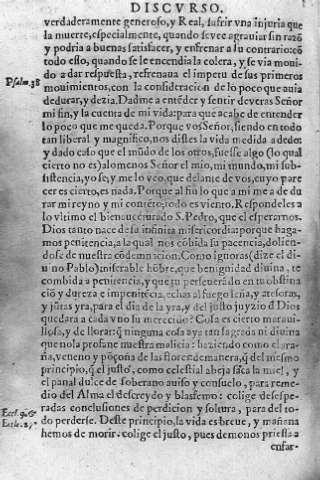 DISCVRSO.
verdaderamente generoso, y Real, sufrir vna injuria que
la muerte, especialmente, quando se vee agrauiar sin razõ
y podria a buenas satisfacer, y enfrenar a su contrario: cõ
todo esso, quando se le encendia la colera, y se via moui-
Psalm. 38
do a dar respuesta, refrenaua el impetu de sus primeros
mouimientos, con la consideracion de lo poco que auia
de durar, y dezia. Dadme a entẽder y sentir deueras Señor
mi fin, y la cuenta de mi vida: para que acabe de entender
lo poco que me queda. Porque vos Señor, siendo en todo
tan liberal y magnifico, nos distes la vida medida a dedos:
y dado caso que el mũdo de los otros, fuesse algo (lo qual
cierto no es) alomenos Señor el mio, mi mundo, mi sub-
sistencia, yo se, y me lo veo, que delante de vos, cuyo pare
cer es cierto, es nada. Porque al fin lo que a mi me a de du
rar mi reyno y mi cetro, todo es viento. Respondeles a
lo vltimo el bienauenturado S. Pedro, que el esperarnos
Dios tanto nace de su infinita misericordia: porque haga-
mos penitencia, a la qual nos cõbida su paciencia, dolien-
dose de nuestra cõdemnacion. Como ignoras (dize el di-
uino Pablo) miserable hõbre, que benignidad diuina, te
combida a penitencia, y que tu perseuerãdo en tu obstina
ciõ y dureza e impenitẽcia, echas al fuego leña, y atesoras,
y jũtas yra, para el dia de la yra, y del justo juyzio d̃ Dios
que dara a cada vno lo merecido? Cosa es cierto maraui-
llosa, y de llorar q̃ ninguna cosa aya tan sagrada ni diuina
que no la profane nuestra malicia: haziendo como el ara-
ña, veneno y põçoña de las flores de manera, q̃ del mismo
principio, q̃ el justo, como celestial abeja saca la miel, y
el panal dulce de soberano auiso y consuelo, para reme-
dio del Alma el descreydo y blasfemo: colige desespe-
Eccl. 9. &
radas conclusiones de perdicion y soltura, para del to-
Eccle. 2.
do perderse. Deste principio, la vida es breue, y mañana
hemos de morir. colige el justo, pues demonos priessa a